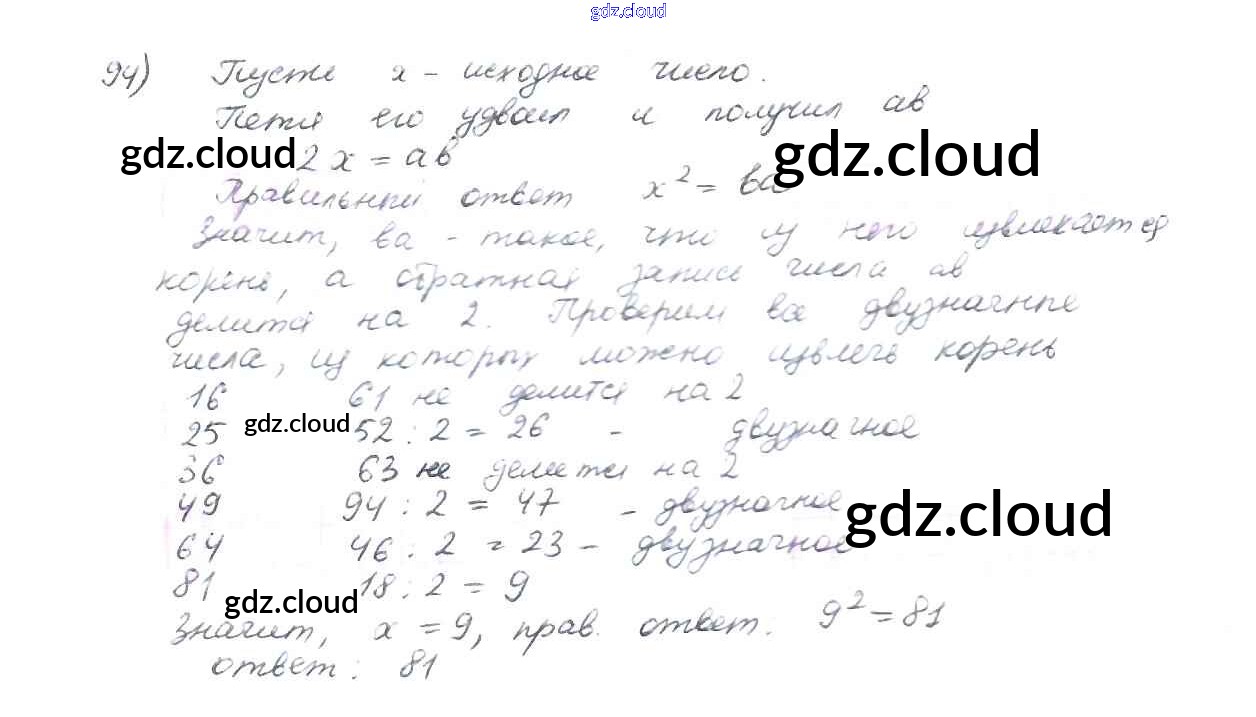 gdz.cloud
94) Пусть x - исходное число.
Петя его удвоил и получил ab
gdz.cloud 2x = ab gdz.cloud
Правильный ответ x² = ba
Значит, ba - такое, что из него извлекается
корень, а обратная запись числа ab
делится на 2. Проверим все двузначные
числа, из которых можно извлечь корень
16 61 не делится на 2
25 gdz.cloud 52 : 2 = 26 - двузначное
36 63 не делится на 2
49 94 : 2 = 47 - двузначное gdz.cloud
64 46 : 2 = 23 - двузначное
81 18 : 2 = 9
gdz.cloud
Значит, x = 9, прав. ответ: 9² = 81
ответ: 81